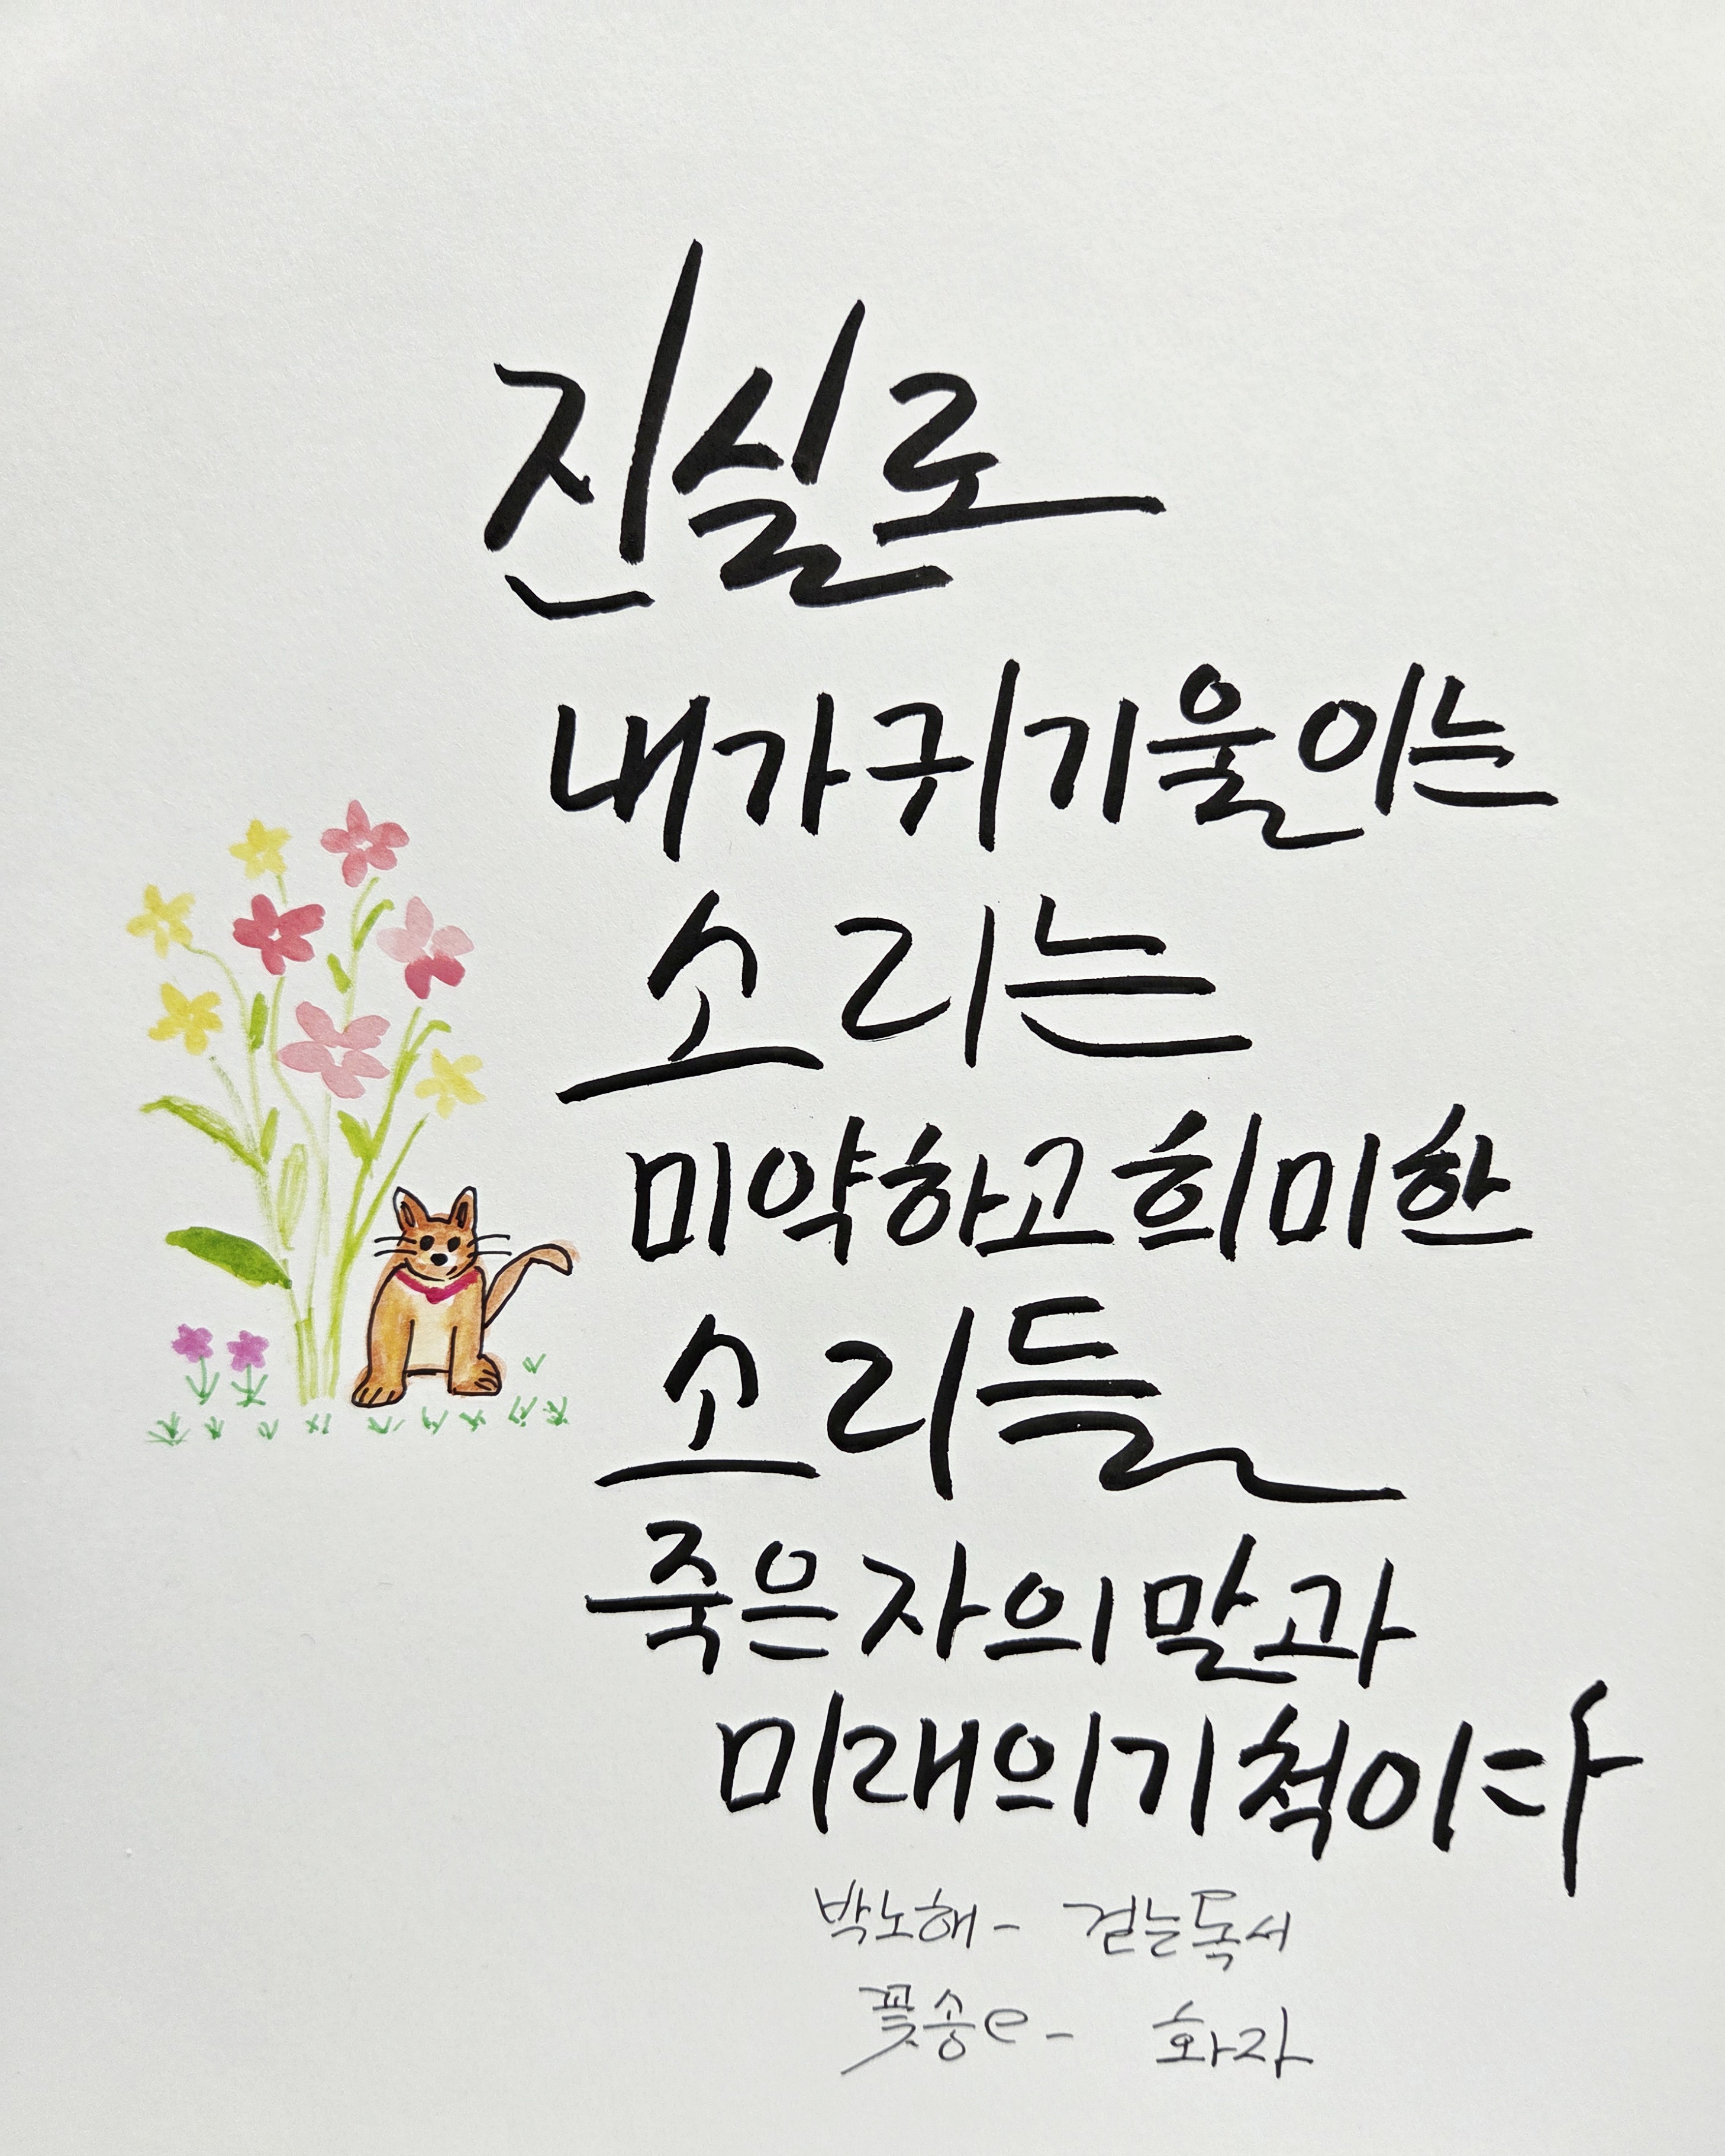 진실로
내가 귀 기울이는
소리는
미약하고 희미한
소리들
죽은 자의 말과
미래의 기척이다
박노해 - 걷는 독서
꽃송e - 화자